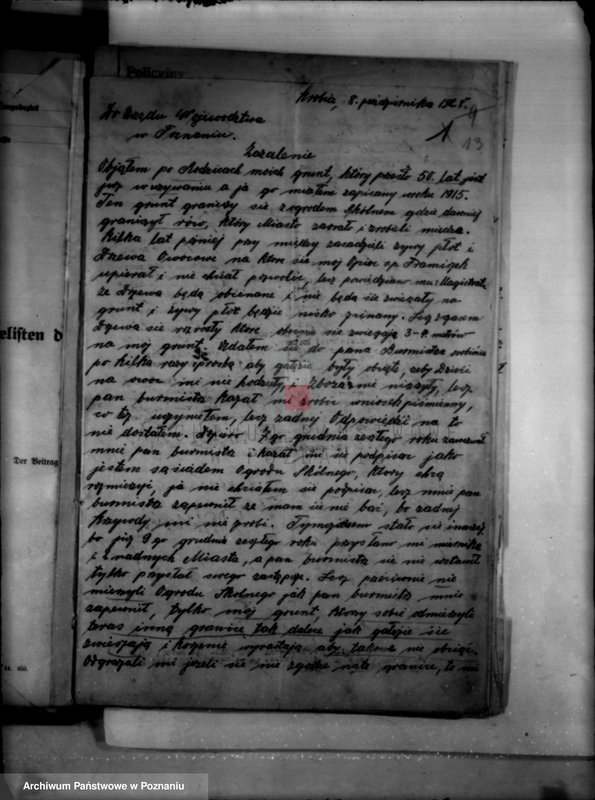 Policyjny
Krobia, 8. października 1928.
4
1
13
Do Urzędu Wojewodztwa
w Poznaniu.
Zażalenie
Objąłem po Rodzicach moich grunt, który przeszło 50. lat jest
już w używaniu a ja go miałem zapisany w roku 1915.
Ten grunt graniczy się z ogrodem Skólnem gdzie dawniej
graniczył rów, który Miasto zaorał i zrobili miedze.
Kilka lat później przy miedzy zasadzili żywy płot i
Drzewa Owocowe na które się mój Ojciec sp. Franciszek
upierał i nie chciał pozwolić, lecz powiedziano mu Magistrat
że Drzewa będą obcinane i nie będą się zwieszały na
grunt i żywy płot będzie nisko zcinany. Lecz z czasem
Drzewa się rozrosły które obecnie się zwieszają 3-4 metrów
na mój grunt. Udałem się do pana Burmistrza
po kilka razy z prozbą aby gałęzie były obcięte, żeby Dzieci
na owoc mi nie hodziły, i Zboża mi nie niszyły, lecz
pan burmistrz kazał mi zrobić wniosek piśmienny,
co też uczyniłem, lecz żadny Odpowiedzi na to
nie dostałem. Dopiero 7-go grudnia zeszłego roku zawezwał
mnie pan burmistrz i kazał mi się podpisać jako
jestem sąsiadem Ogrodu Skólnego, który chcą
rozmierzyć, ja nie chciałem się podpisać, lecz mnie pan
burmistrz zapewnił że mam się nie bać, bo żadnej
Krzywdy mi nie zrobi. Tymczasem stało się inaczej
bo już 9-go grudnia zeszłego roku przysłano mi miernika
i 2 radnych Miasta, a pan burmistrz się nie wstawił
tylko przysłał swego zastępcę. Lecz panowie nie
mierzyli Ogrodu Skólnego jak pan burmistrz mnie
zapewnił, tylko mój grunt, który sobie odmierzyli
zaraz inną granicę tak dalece jak gałęzie się
zwieszają i korzenie wyrastają aby takowe nie obciąć.
Odgrażali mi jeżeli się nie zgodzę na te granice, to mi
elisten d
Der Beitrag
Archiwum Państwowe w Poznaniu